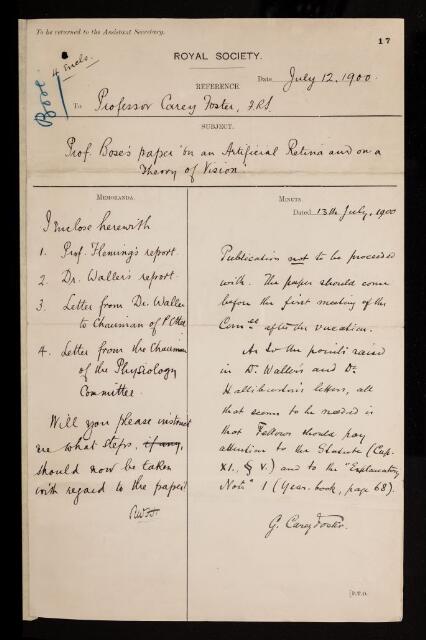 To be returned to the Assistant Secretary.
17
4 Encls.
Bose
ROYAL SOCIETY.
Date July 12, 1900.
REFERENCE
To Professor Carey Foster, F.R.S.
SUBJECT.
Prof. Bose's paper 'on an Artificial Retina and on a
Theory of Vision.
MEMORANDA.
I inclose herewith
1. Prof. Fleming's report
2. Dr. Waller's report
3. Letter from Dr. Waller
to Chairman of P. Cttee
4. Letter from the Chairman
of the Physiology
Committee.
Will you please instruct
me what steps, if any,
should now be taken
with regard to the paper?
RWFH
MINUTE
Dated 13th July, 1900
Publication not to be proceeded
with. The paper should come
before the first meeting of the
Comee after the vacation.
As to the points raised
in Dr. Waller's and Dr.
Halliburton's letters, all
that seems to be needed is
that Fellows should pay
attention to the Statute (Cap.
XI., § V.) and to the "Explanatory
Note" 1 (Year-book, page 68).
G. Carey Foster.
[P.T.O.